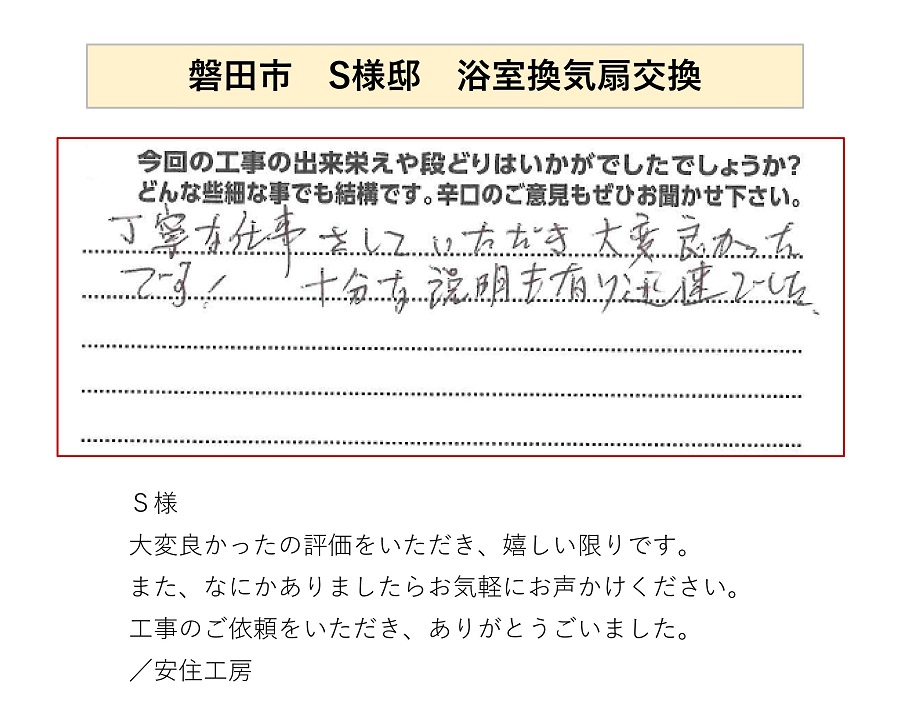 磐田市　S様邸　浴室換気扇交換
今回の工事の出来栄えや段どりはいかがでしたでしょうか?
どんな些細な事でも結構です。辛口のご意見もぜひお聞かせ下さい。
丁寧な仕事をしていただき 大変良かった
です！　十分な説明も有り迅速でした。
Ｓ様
大変良かったの評価をいただき、嬉しい限りです。
また、なにかありましたらお気軽にお声かけください。
工事のご依頼をいただき、ありがとうごいました。
／安住工房